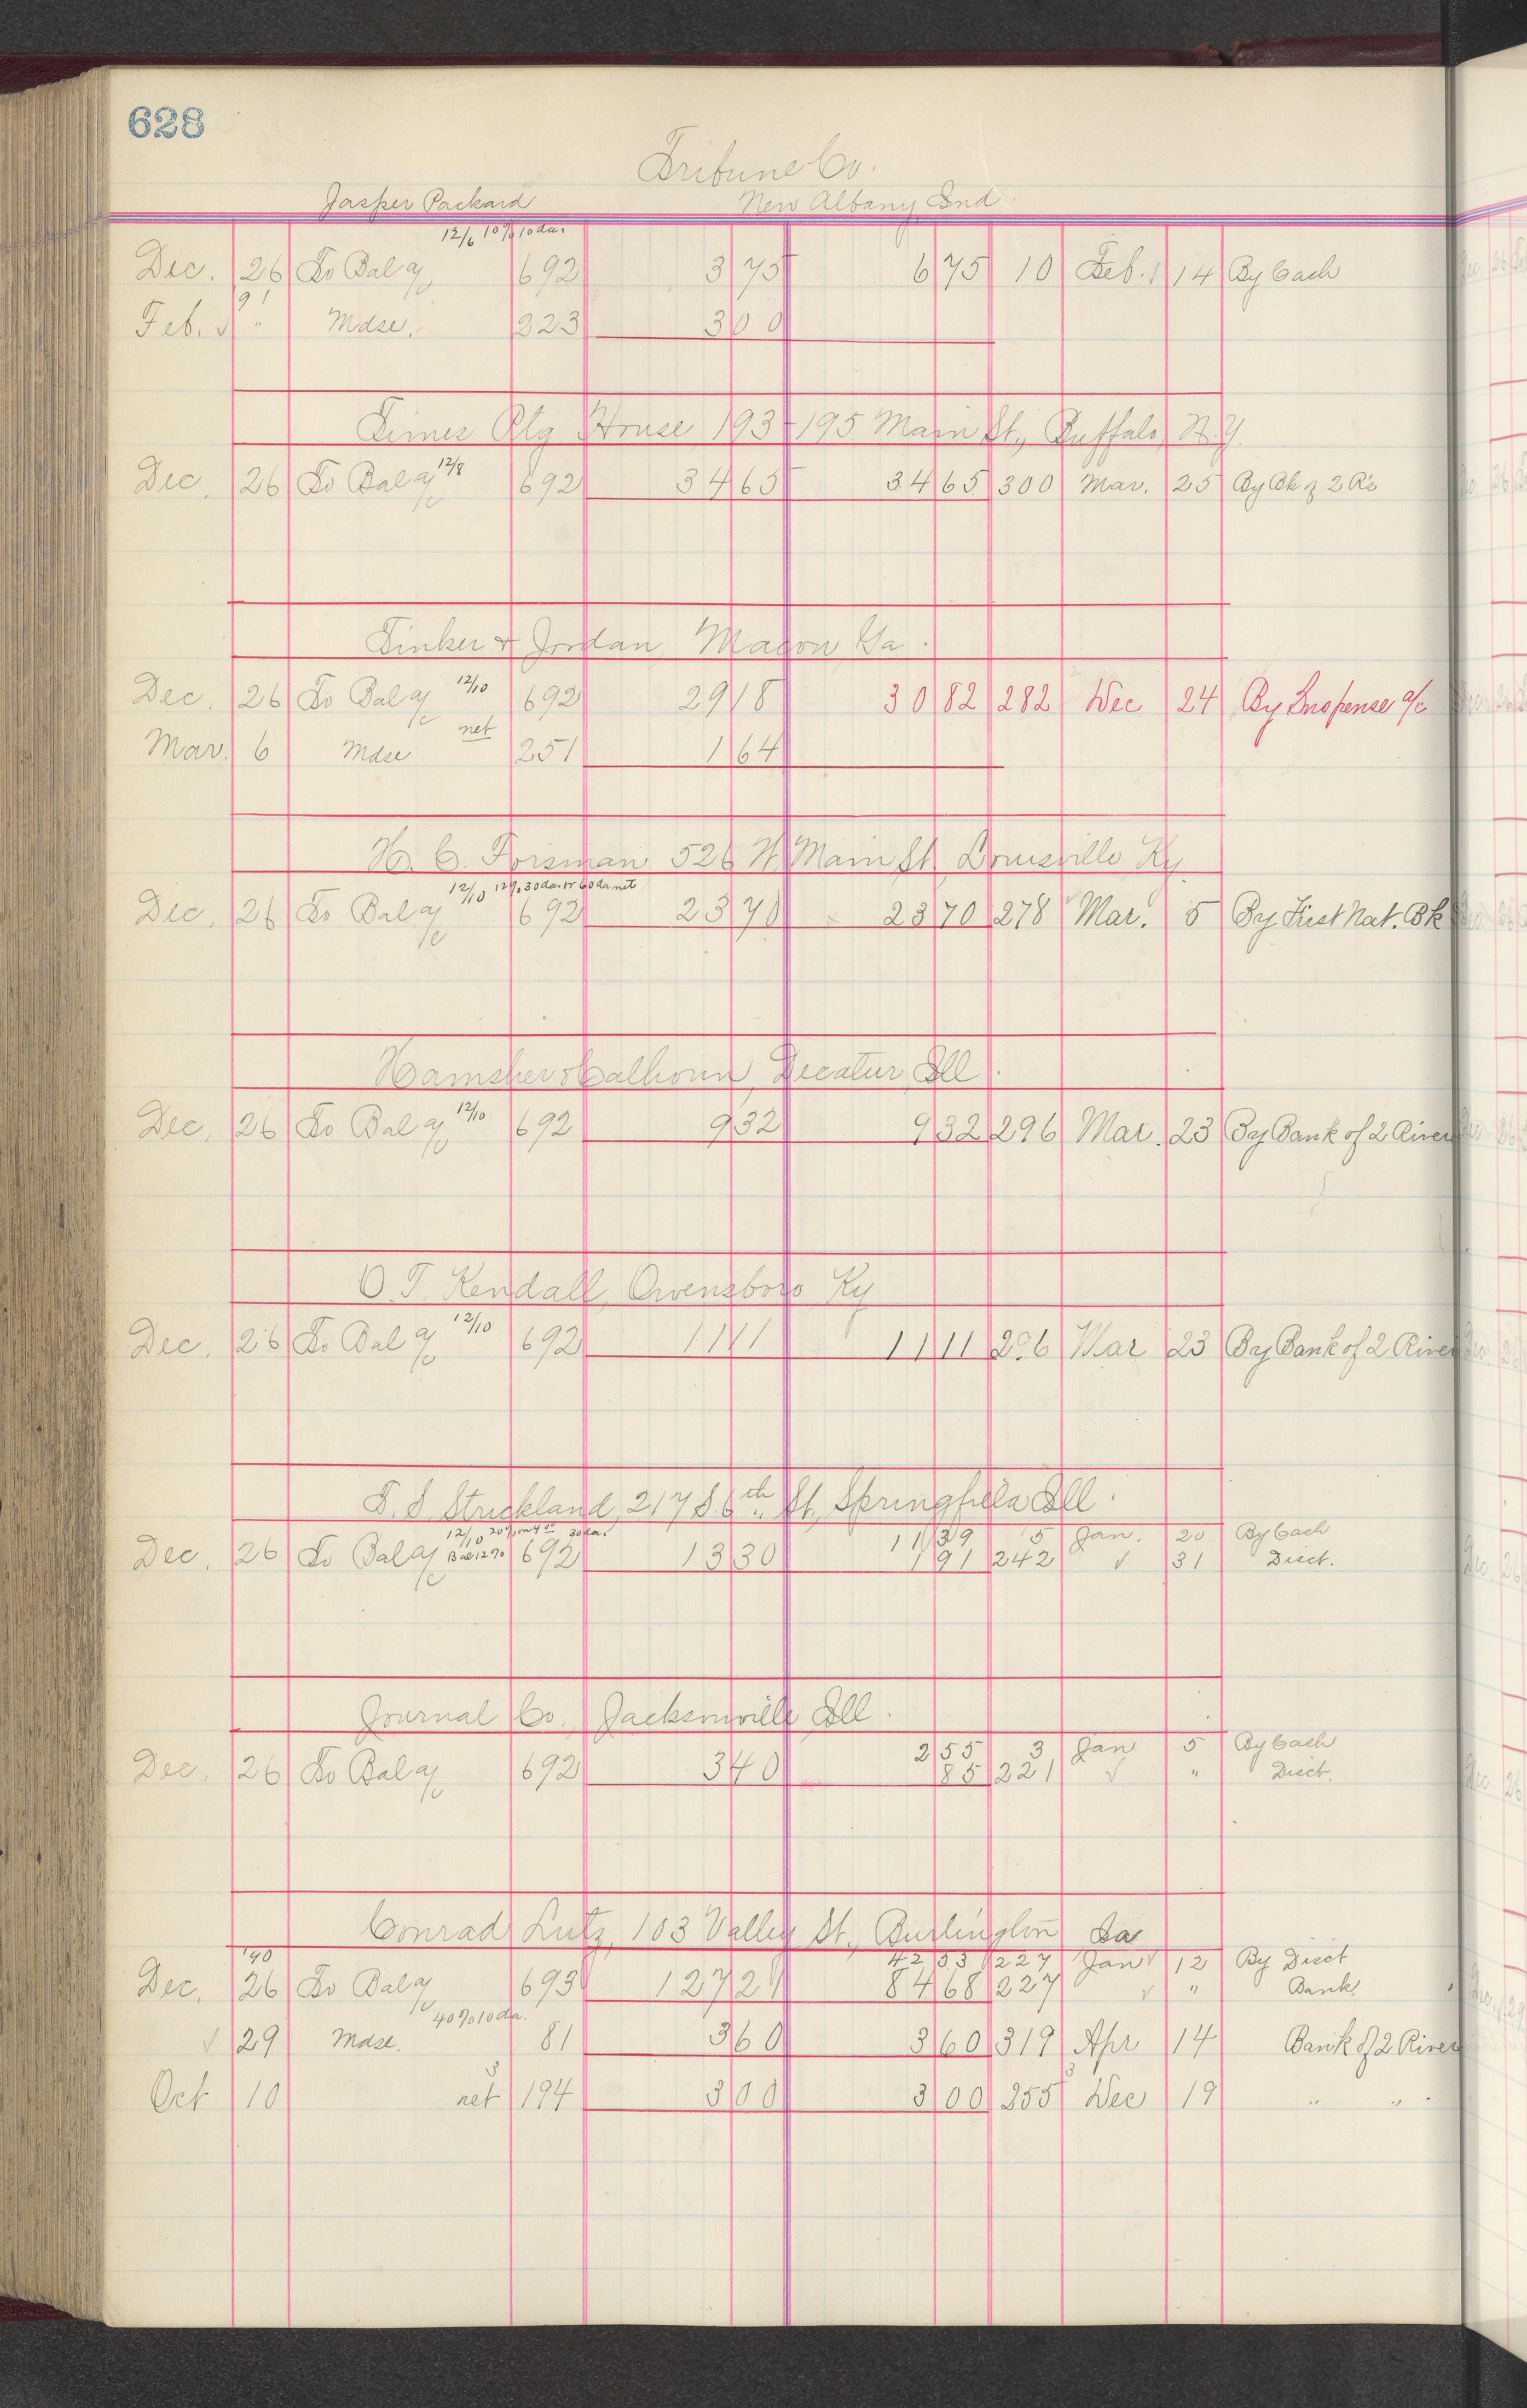 628
Tribune Co.
Jasper Packard New Albany Ind.
12/6 10% 10 da.
Dec. 26 To Bal a/c 692 3 75 6 75 10 Feb. 14 By Cash
91
Feb. √ " Mdse. 223 3 00
Times Ptg House 193-195 Main St., Buffalo, N.Y.
Dec. 26 To Bal a/c 12/8 692 34 65 34 65 300 Mar. 25 By Bk of 2 R's
Tinker & Jordan, Macon Ga.
Dec. 26 To Bal a/c 12/10 692 29 18 30 82 282 Dec 24 By Suspense a/c
Mar. 6 Mdse net 251 1 64
H. C. Forsman 526 W Main St. Louisville Ky
12/10 12% 30 da. or 60 da net
Dec. 26 To Bal a/c 692 23 70 23 70 278 Mar. 5 By First Nat. Bk
Hamsher & Calhoun, Decatur Ill.
Dec. 26 To Bal a/c 12/10 692 9 32 9 32 296 Mar. 23 By Bank of 2 River
O. T. Kendall, Owensboro Ky
Dec. 26 To Bal a/c 12/10 692 11 11 11 11 296 Mar 23 By Bank of 2 River
T. S. Strickland, 217 S. 6th St., Springfield Ill.
12/10 20% on 4 00 30 da. 11 39 5 Jan. 20 By Cash
Dec. 26 To Bal a/c Bal 12 70 692 13 30 1 91 242 √ 31 Disct.
Journal Co., Jacksonville Ill.
2 55 3 Jan 5 By Cash
Dec. 26 To Bal a/c 692 3 40 85 221 √ " Disct.
Conrad Lutz, 103 Valley St., Burlington Ia
'90 42 53 227 Jan 12 By Disct
Dec. 26 To Bal a/c 693 127 21 84 68 227 √ " Bank
40% 10 da.
√ 29 Mdse. 81 3 60 3 60 319 Apr 14 Bank of 2 River
3 3
Oct 10 net 194 3 00 3 00 255 Dec 19 " "